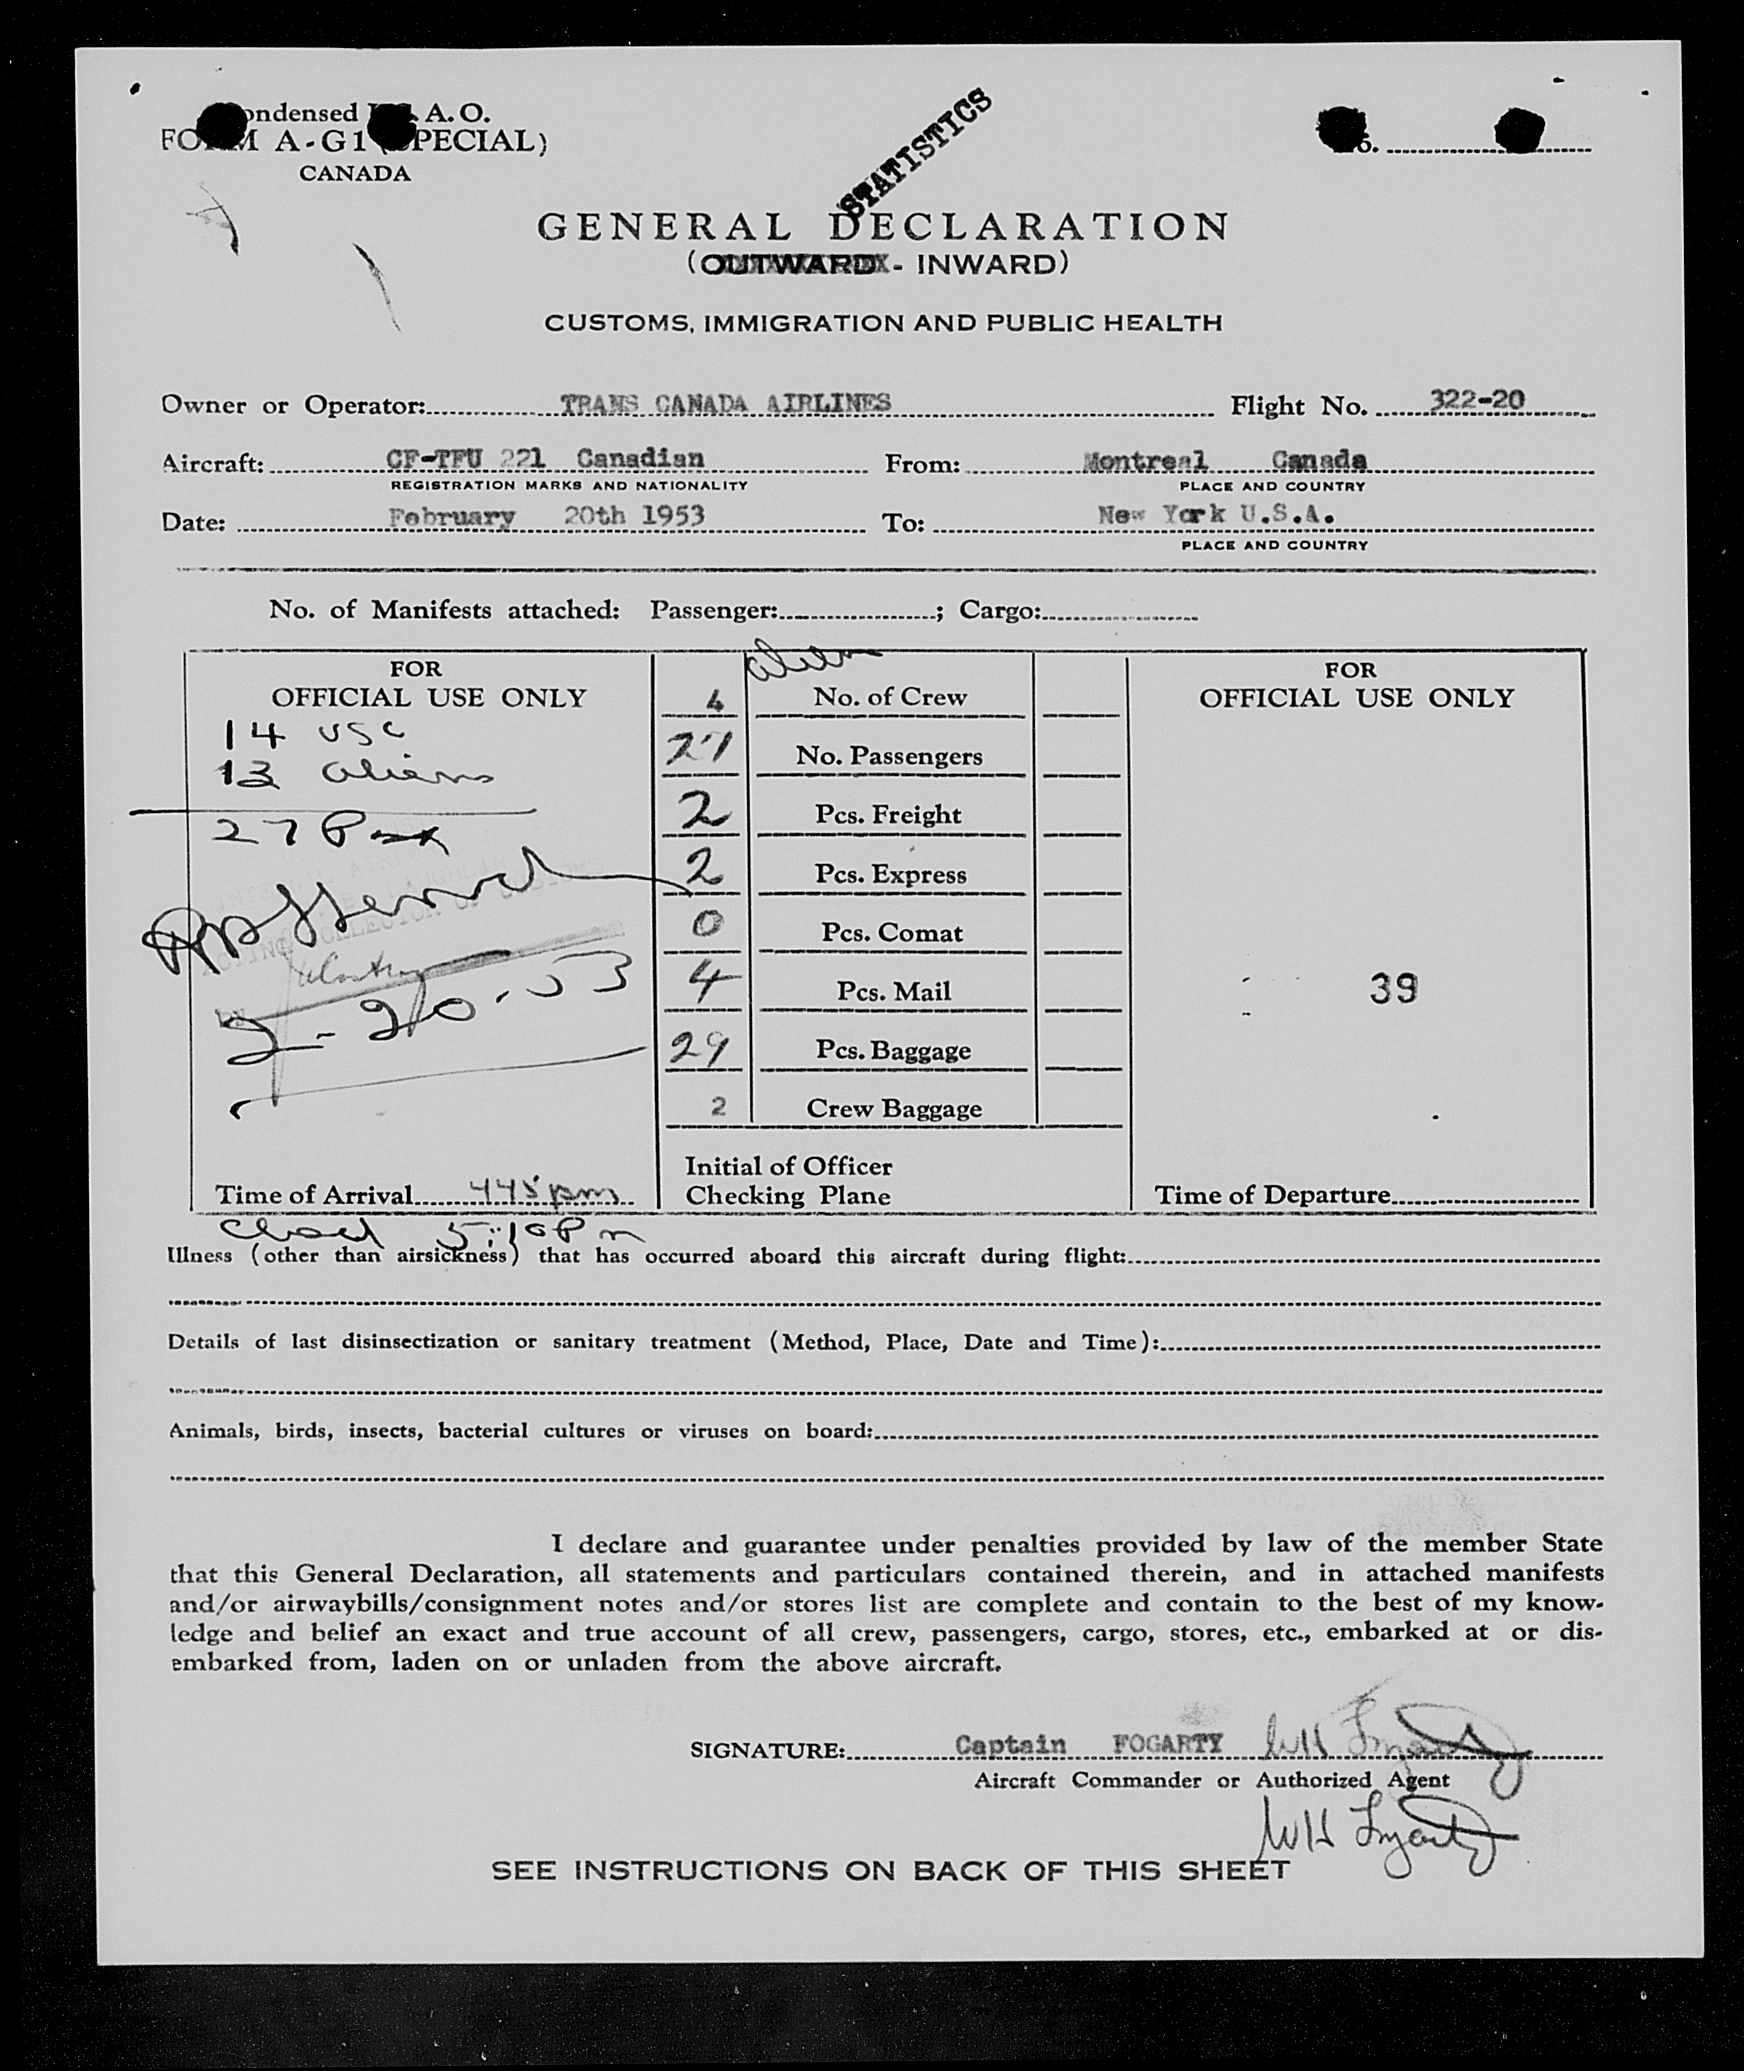 ondensed A. O.
FORM A-G1 (SPECIAL)
CANADA
STATISTICS
GENERAL DECLARATION
(OUTWARD - INWARD)
CUSTOMS, IMMIGRATION AND PUBLIC HEALTH
Owner or Operator: TRANS CANADA AIRLINES Flight No. 322-20
Aircraft: CF-TFU 221 Canadian From: Montreal Canada
REGISTRATION MARKS AND NATIONALITY PLACE AND COUNTRY
Date: February 20th 1953 To: New York U.S.A.
PLACE AND COUNTRY
No. of Manifests attached: Passenger: ; Cargo:
FOR
OFFICIAL USE ONLY
14 USC
13 aliens
27 Pax
2-20-53
Time of Arrival 445 pm
alien
4 No. of Crew
27 No. Passengers
2 Pcs. Freight
2 Pcs. Express
0 Pcs. Comat
4 Pcs. Mail
29 Pcs. Baggage
2 Crew Baggage
Initial of Officer
Checking Plane
FOR
OFFICIAL USE ONLY
39
Time of Departure
5:10 Pm
Illness (other than airsickness) that has occurred aboard this aircraft during flight:
Details of last disinsectization or sanitary treatment (Method, Place, Date and Time):
Animals, birds, insects, bacterial cultures or viruses on board:
I declare and guarantee under penalties provided by law of the member State
that this General Declaration, all statements and particulars contained therein, and in attached manifests
and/or airwaybills/consignment notes and/or stores list are complete and contain to the best of my know-
ledge and belief an exact and true account of all crew, passengers, cargo, stores, etc., embarked at or dis-
embarked from, laden on or unladen from the above aircraft.
SIGNATURE: Captain FOGARTY WH Fogarty
Aircraft Commander or Authorized Agent
WH Fogarty
SEE INSTRUCTIONS ON BACK OF THIS SHEET